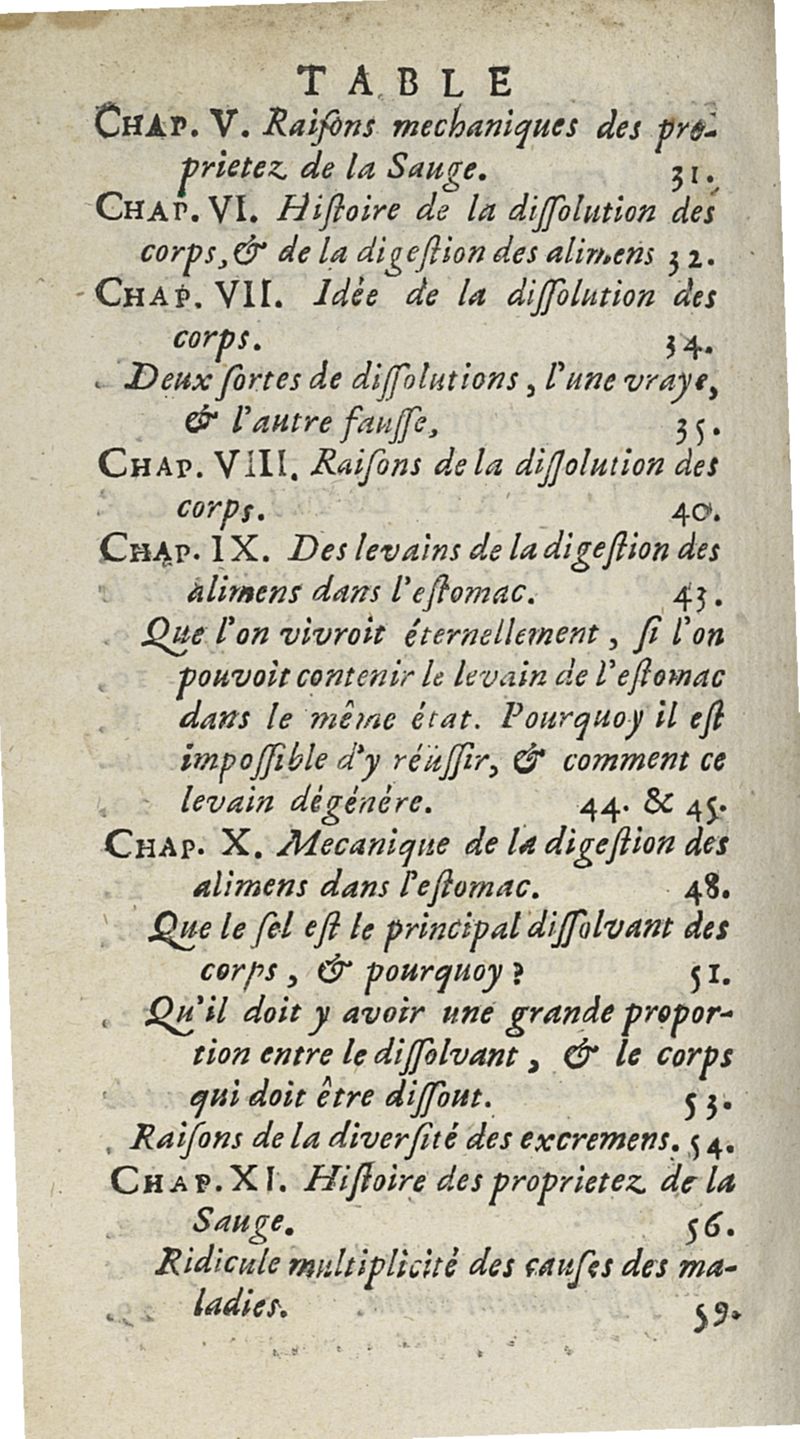 TABLE
CHAP. V. Raiſons mechaniques des pro-
prietez de la Sauge. 31.
CHAP. VI. Hiſtoire de la diſſolution des
corps, & de la digeſtion des alimens 32.
CHAP. VII. Idée de la diſſolution des
corps. 34.
Deux ſortes de diſſolutions, l'une vraye,
& l'autre fauſſe, 35.
CHAP. VIII. Raiſons de la diſſolution des
corps. 40.
CHAP. IX. Des levains de la digeſtion des
alimens dans l'eſtomac. 43.
Que l'on vivroit éternellement, ſi l'on
pouvoit contenir le levain de l'eſtomac
dans le même état. Pourquoy il eſt
impoſſible d'y réüſſir, & comment ce
levain dégénére. 44. & 45.
CHAP. X. Mecanique de la digeſtion des
alimens dans l'eſtomac. 48.
Que le ſel eſt le principal diſſolvant des
corps, & pourquoy? 51.
Qu'il doit y avoir une grande propor-
tion entre le diſſolvant, & le corps
qui doit être diſſout. 53.
Raiſons de la diverſité des excremens. 54.
CHAP. XI. Hiſtoire des proprietez de la
Sauge. 56.
Ridicule multiplicité des cauſes des ma-
ladies. 59.